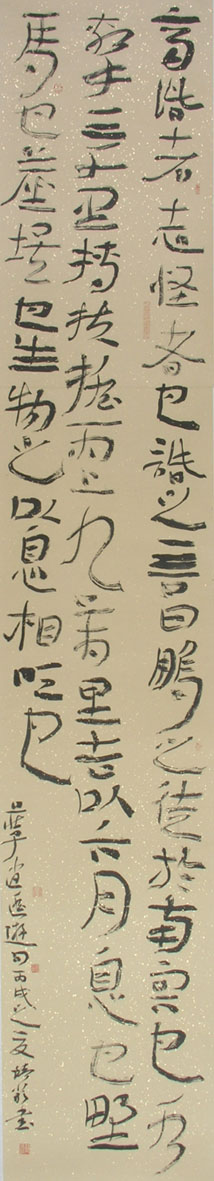 齊諧者志怪者也諧之言曰鵬之徙於南冥也水
擊三千里摶扶搖而上九萬里去以六月息也野
馬也塵埃也生物之以息相吹也
莊子逍遥遊句丙戌之夏